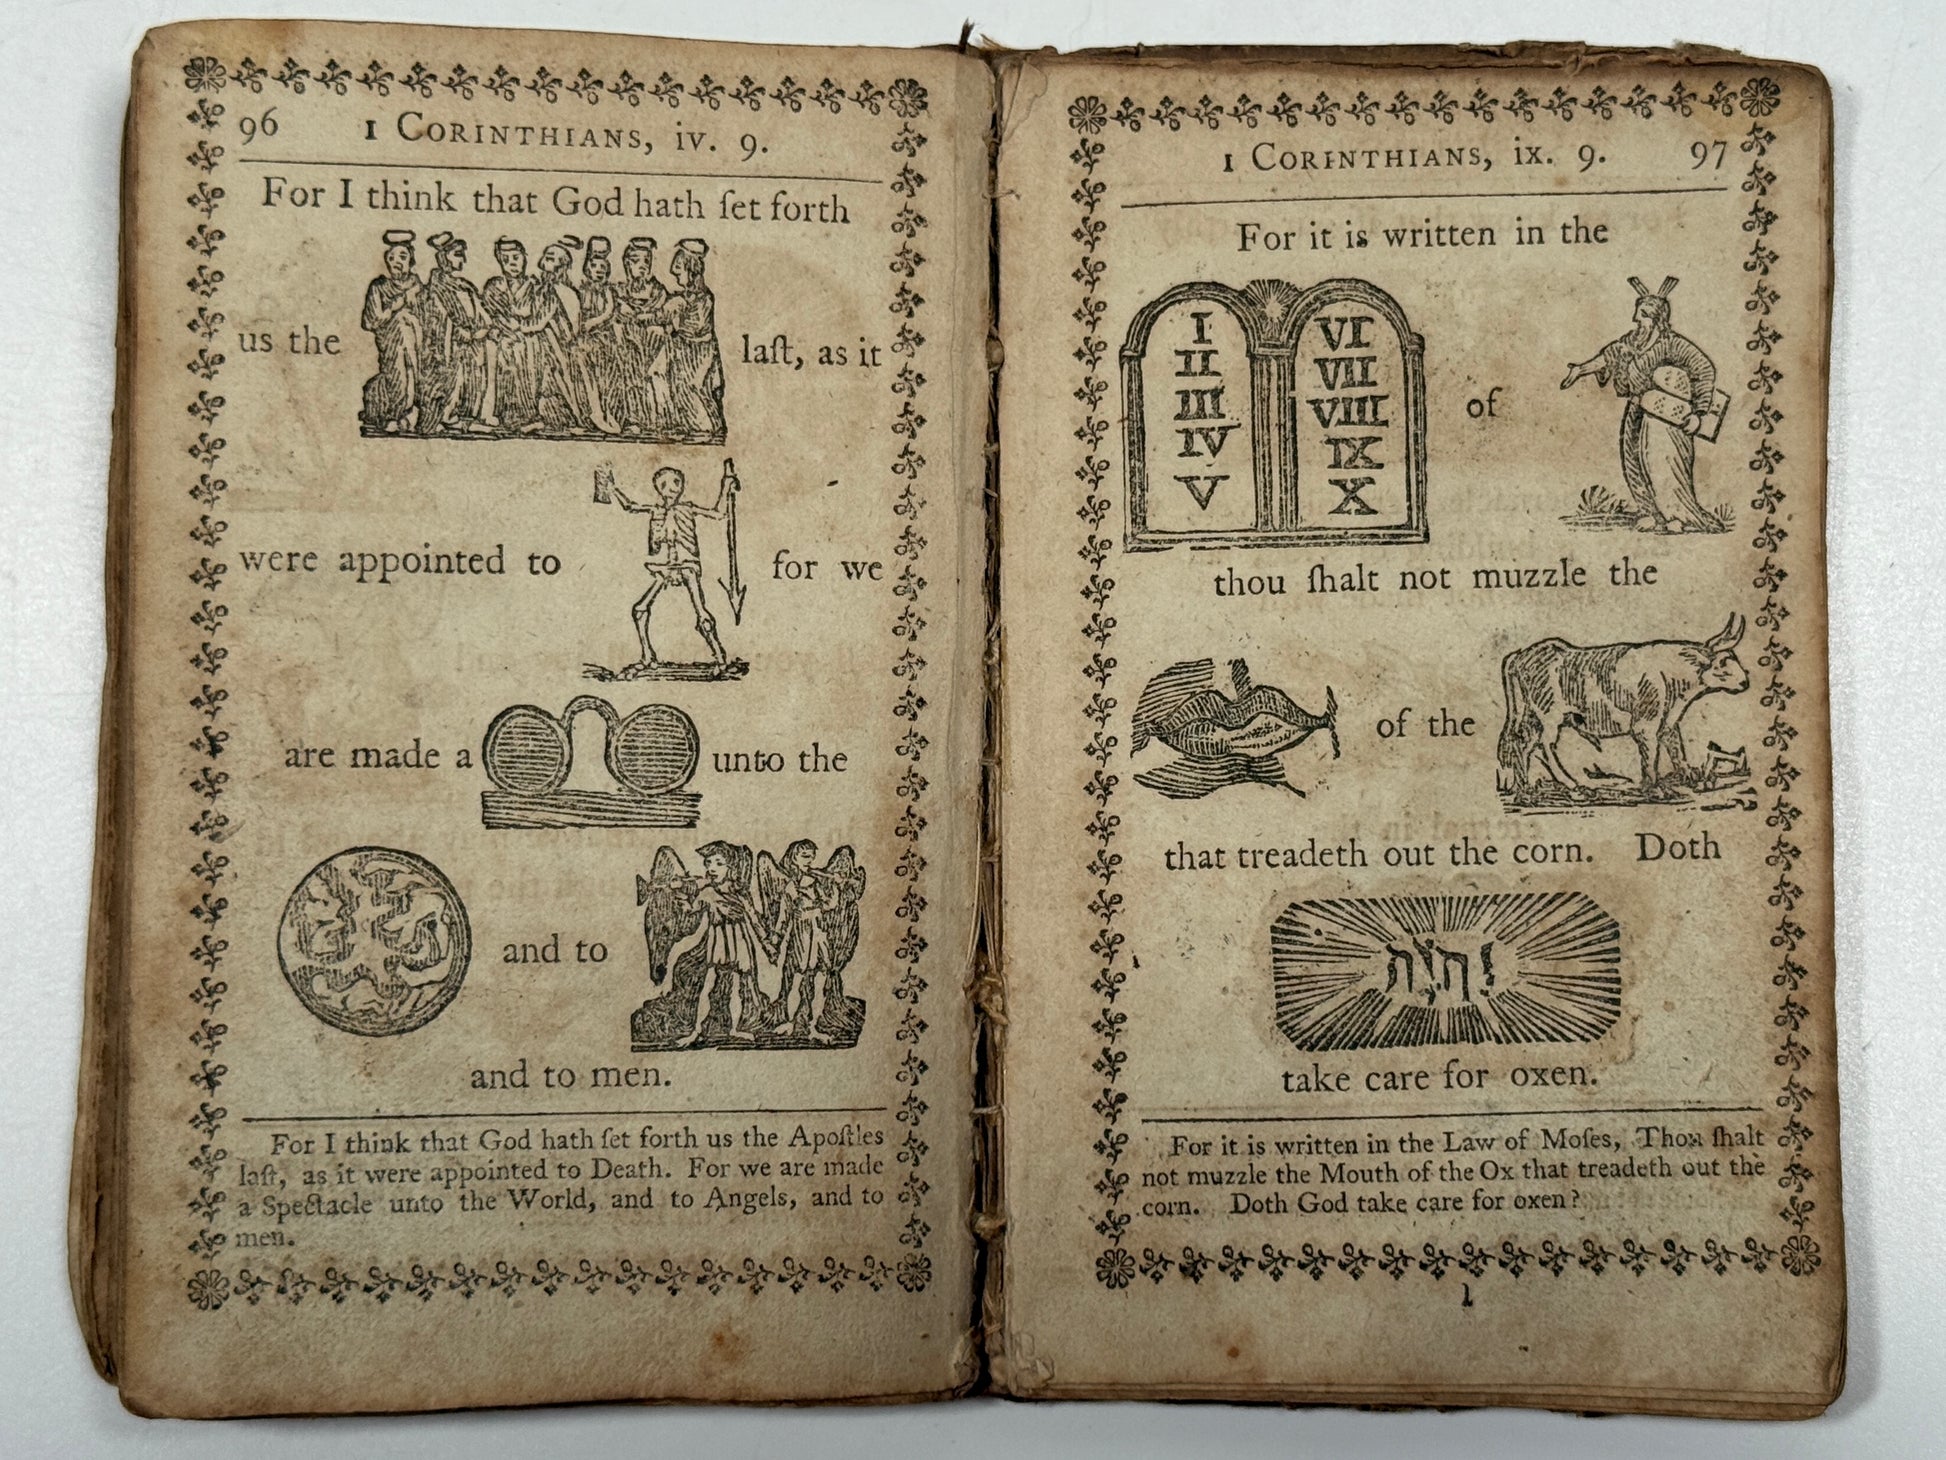 96 1 CORINTHIANS, iv. 9.
For I think that God hath ſet forth
us the laſt, as it
were appointed to for we
are made a unto the
and to
and to men.
For I think that God hath ſet forth us the Apoſtles
laſt, as it were appointed to Death. For we are made
a Spectacle unto the World, and to Angels, and to
men.
1 CORINTHIANS, ix. 9. 97
For it is written in the
I VI
II VII
III VIII
IV IX
V X
of
thou ſhalt not muzzle the
of the
that treadeth out the corn. Doth
יהוה
take care for oxen.
For it is written in the Law of Moſes, Thou ſhalt
not muzzle the Mouth of the Ox that treadeth out the
corn. Doth God take care for oxen?
I